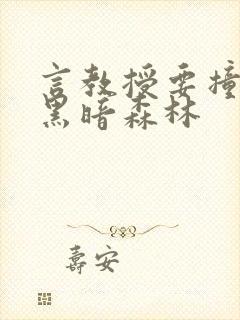 言教授要撞
黑暗森林
壽安